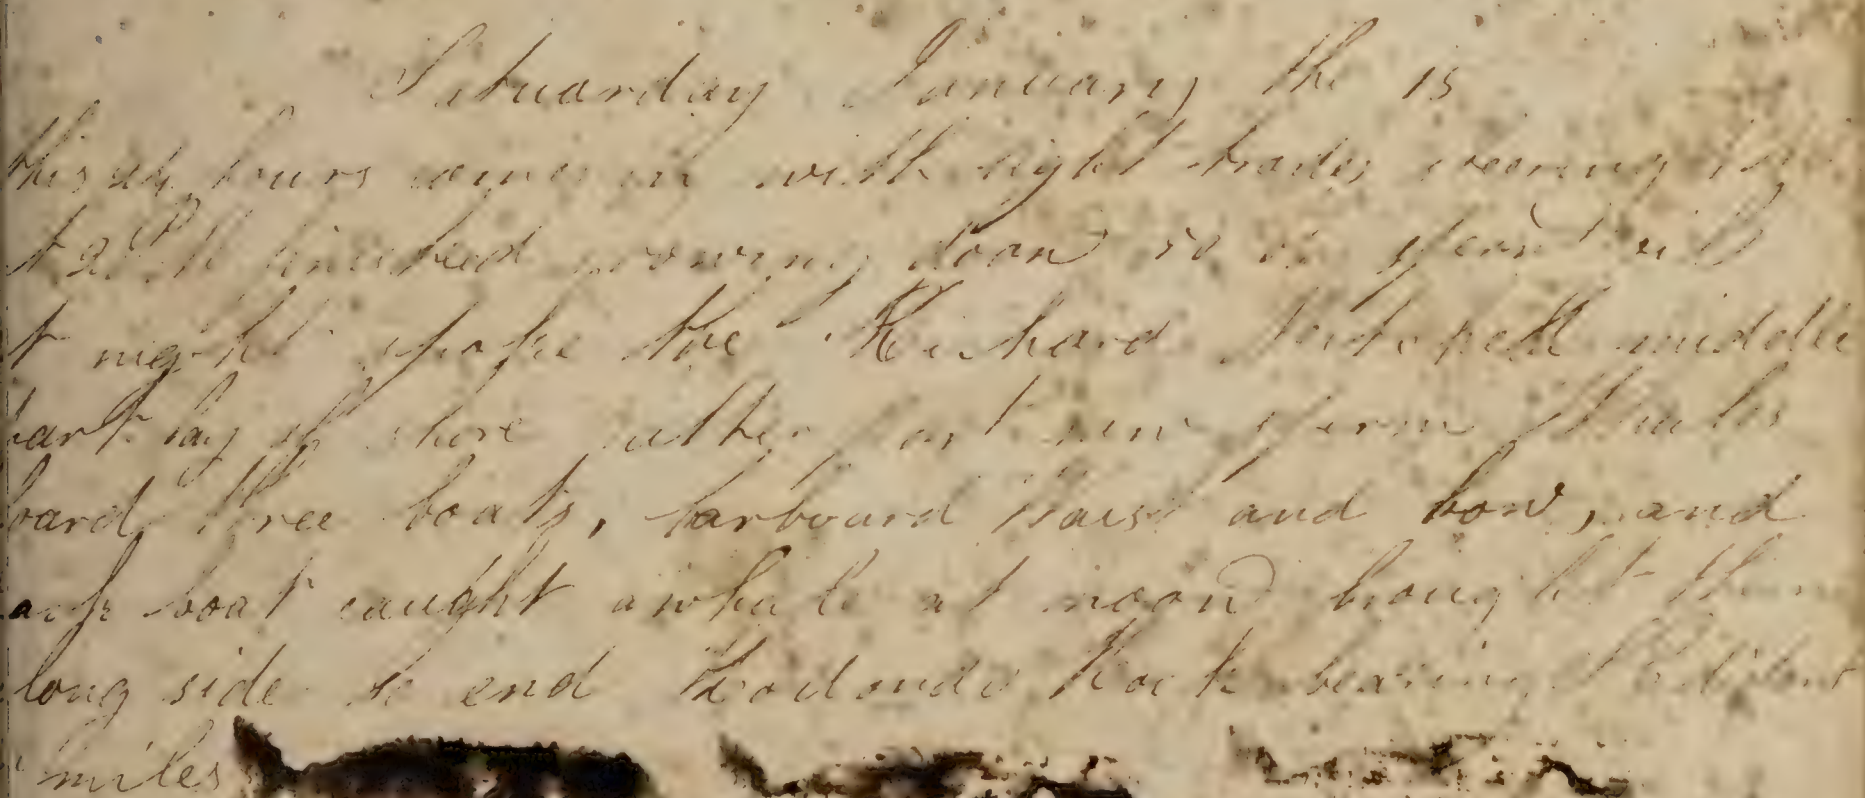 Satuarday January the 15
this 24 hours comes in with light trades steering by
at 2 P M finished stowing doon so to stand till
t night spoke the Richard Mitchell middle
part lay of shore latter part saw sperm Whales
loard three boats, larboard Waist and bow, and
boat caught a whale at noon brought them
long side so end Rodondo Rock bearing
miles